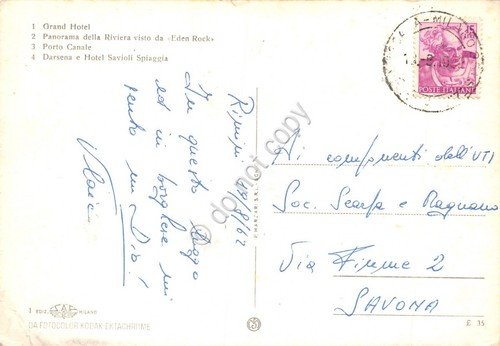 1 Grand Hotel
2 Panorama della Riviera visto da «Eden Rock»
3 Porto Canale
4 Darsena e Hotel Savioli Spiaggia
15
POSTE ITALIANE
Rimini 19/8/62
In questo
ed in borghese mi
sento un Dio!
Ai componenti dell'UTI
Soc. Scarpa e Magnano
Via Fiume 2
SAVONA
do not copy
EDIZ. SAF MILANO
DA FOTOCOLOR KODAK EKTACHROME
E 35